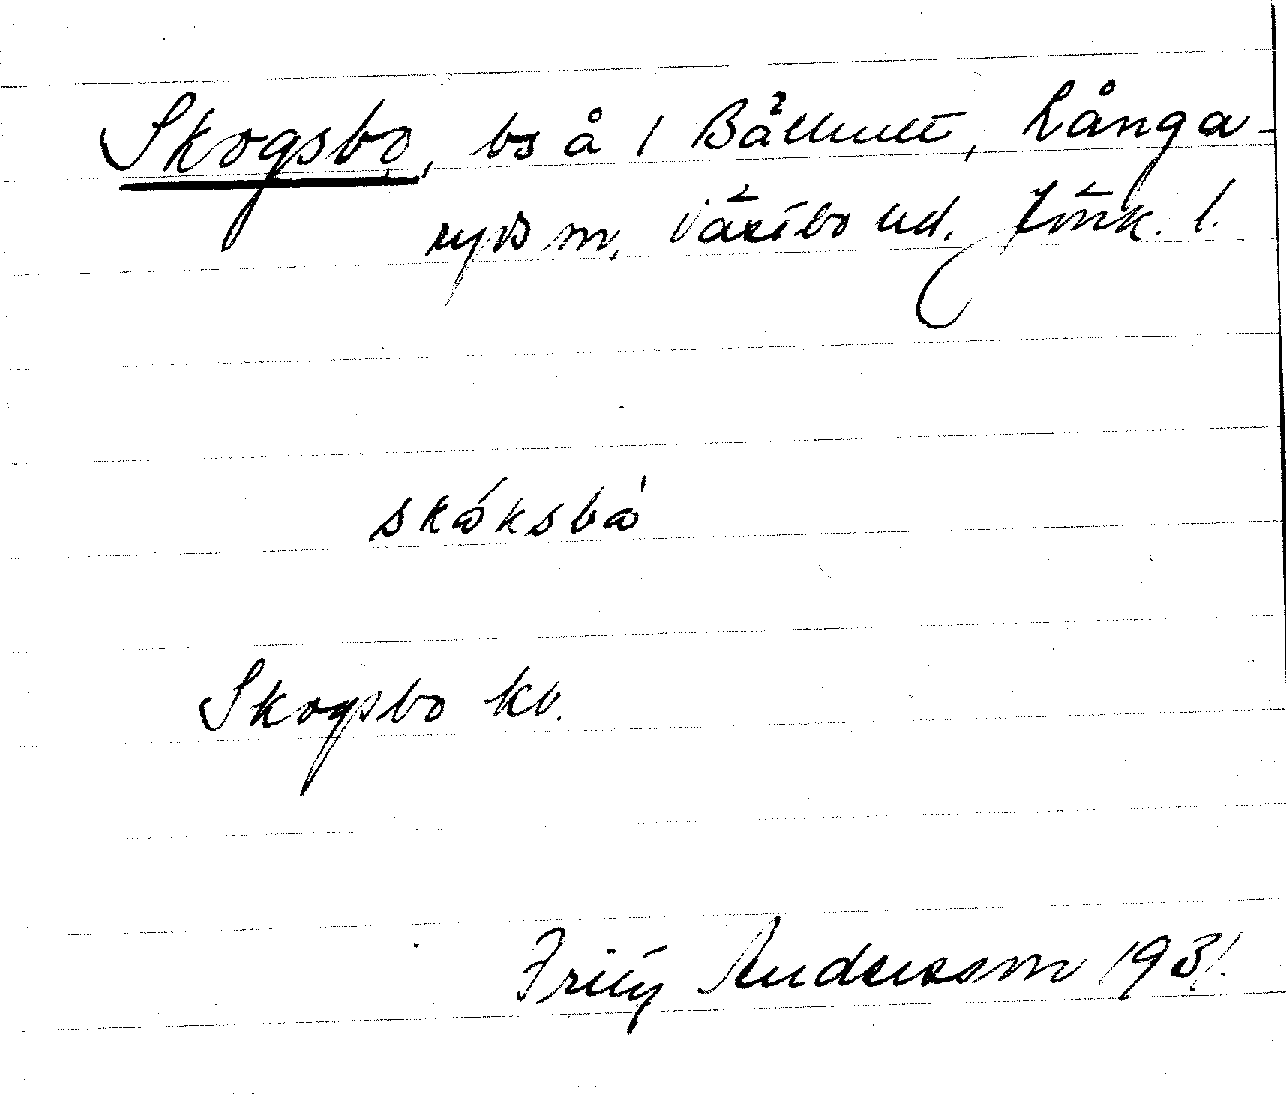 Skogsbo, bs å 1 Bållhult, Långa-
ryds sn, Västbo hd. Jönk. l.
skåksbå
Skogsbo kb.
Fritz Andersson 1931.